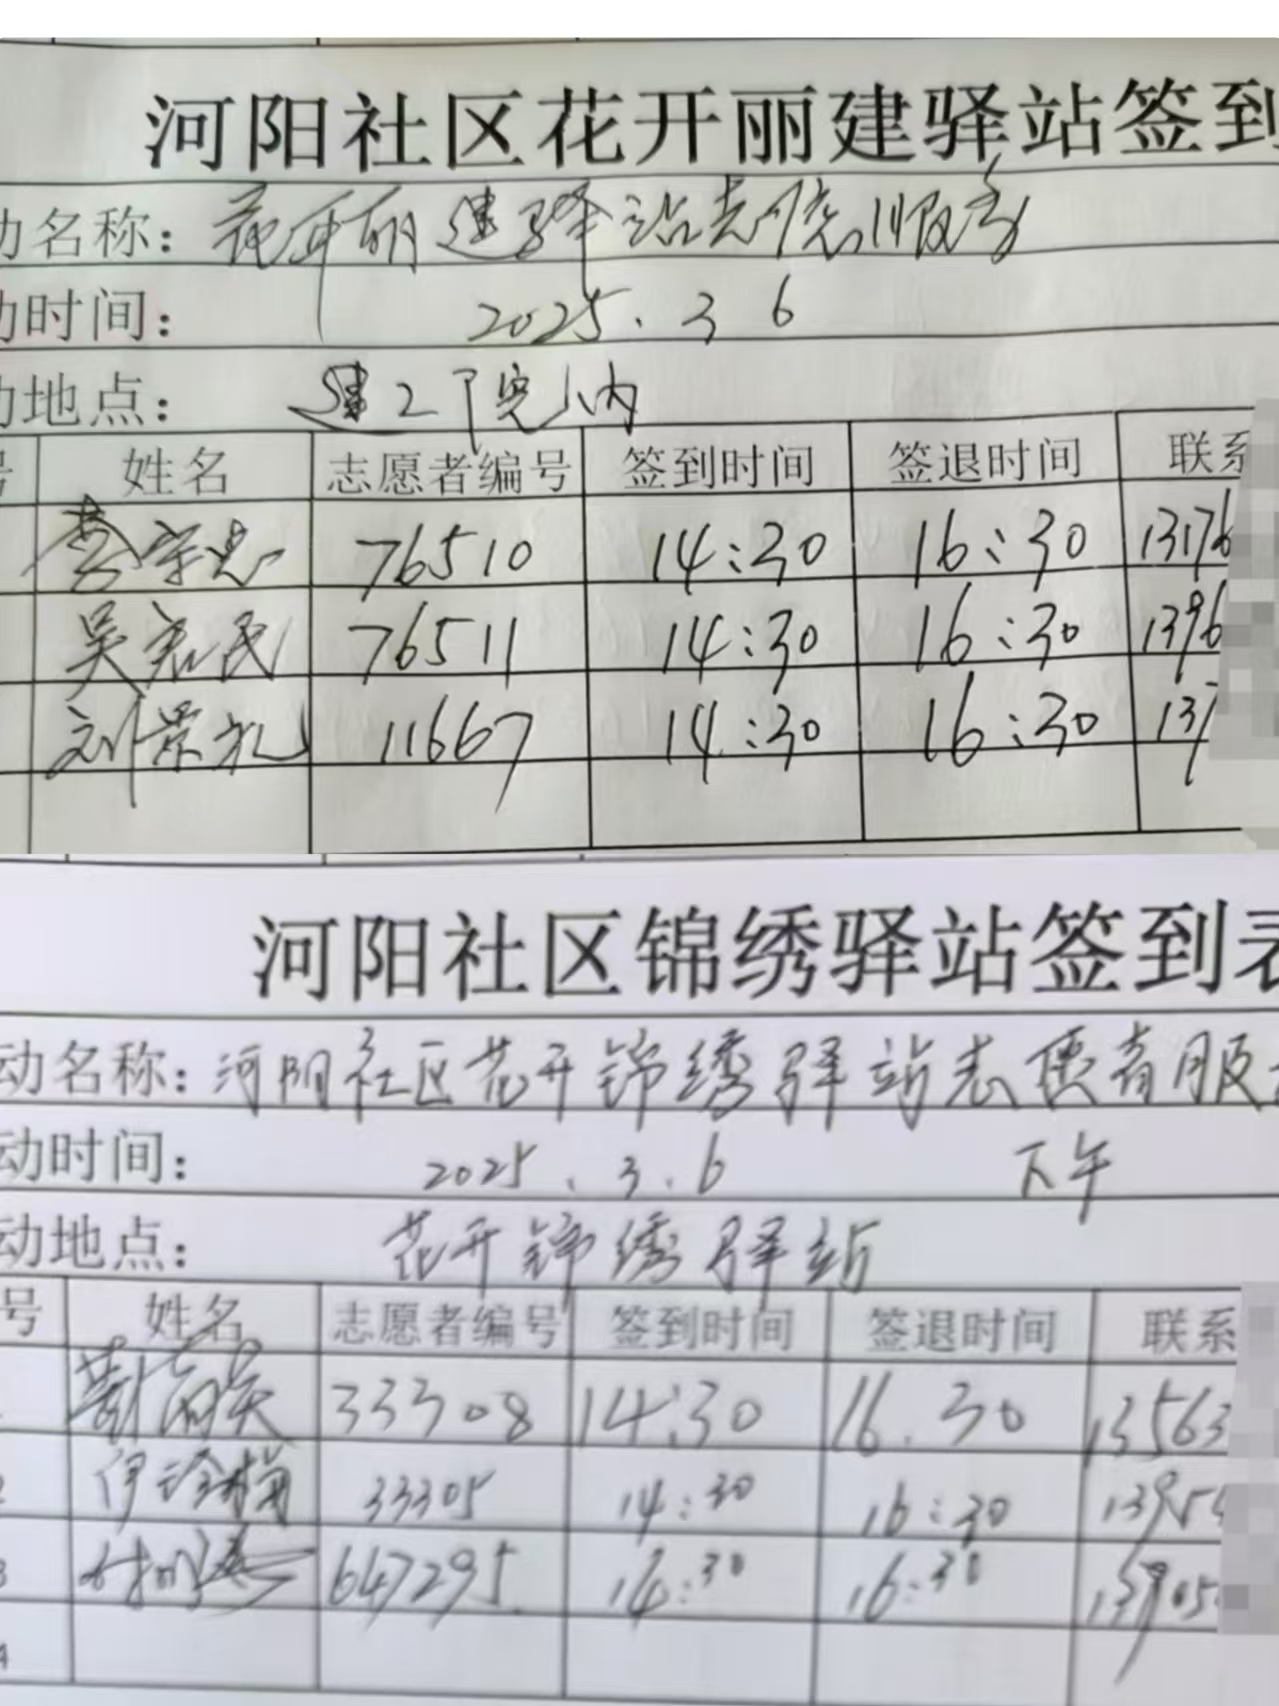 河阳社区花开丽建驿站签到
动名称：花开丽建驿站志愿服务
动时间： 2025.3 6
动地点： 建2下院内
号 姓名 志愿者编号 签到时间 签退时间 联系
李宗忠 76510 14:30 16:30 13176
吴 民 76511 14:30 16:30 1396
刘景礼 11667 14:30 16:30 137
河阳社区锦绣驿站签到表
动名称：河阳社区花开锦绣驿站志愿者服
动时间： 2025.3.6 下午
动地点： 花开锦绣驿站
号 姓名 志愿者编号 签到时间 签退时间 联系
33308 14:30 16.30 13563
2 伊 梅 33305 14:30 16:30 13954
3 647295 14:30 16:30 13905
4